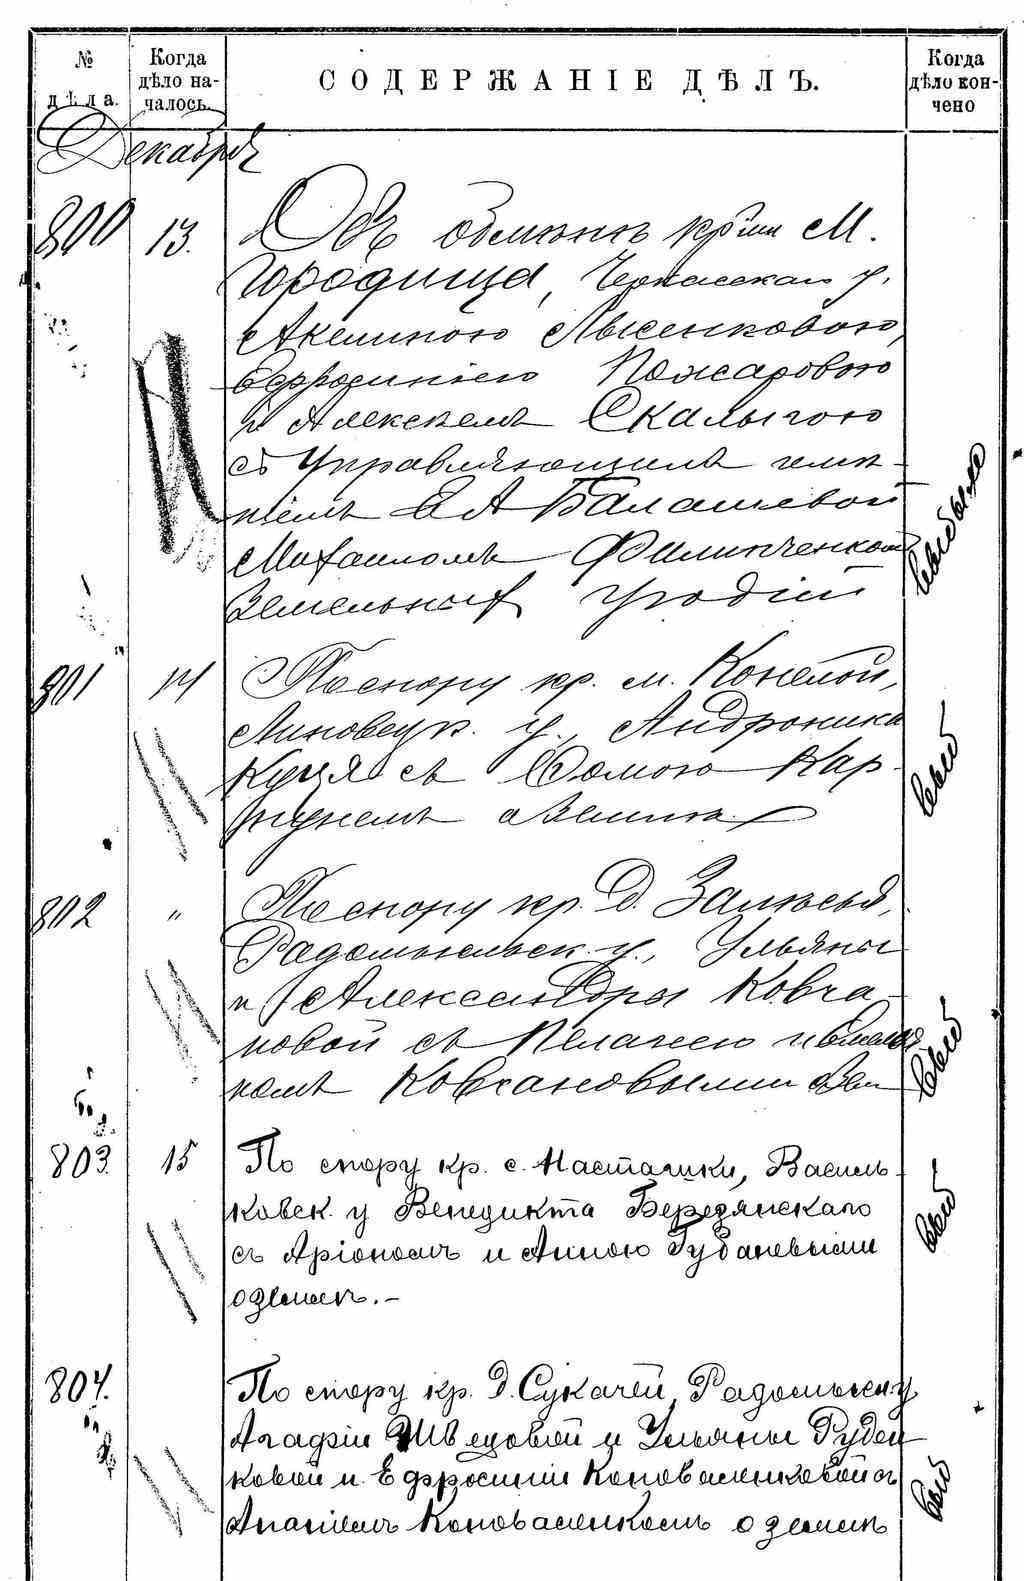 № дѣла.
Когда дѣло началось.
СОДЕРЖАНІЕ ДѢЛЪ.
Когда дѣло кончено
Декабрь
800 13. Объ обмѣнѣ кр-ми М.
Городища, Черкасскаго у.
Акелиною Лысенковою,
Ефросиніею Пожаровою
и Алексѣемъ Скалыгою
съ Управляющимъ имѣ-
ніемъ Е А Балашевой
Михаиломъ Филипченкомъ
Земельных угодій
801 14 По спору кр. м. Конелой,
Липовецк. у., Андроника
Куця съ Фомою Кар-
пунемъ о землѣ
802 " По спору кр. д. Залѣсья,
Радомысльск. у., Ульяны
и Александры Ковга-
новой съ Пелагіею и
Ковгановыми о зем
803. 15 По спору кр. с. Насташки, Василь-
ковск. у Венедикта Бередянскаго
съ Аріономъ и Анною Губаневыми
о землѣ.-
804. По спору кр. д. Сукачей, Радомыск. у
Агафіи Шведовой и Ульяны Руден
ковой и Ефросиніи Коноваленковой съ
Ананіемъ Коноваленкомъ о землѣ